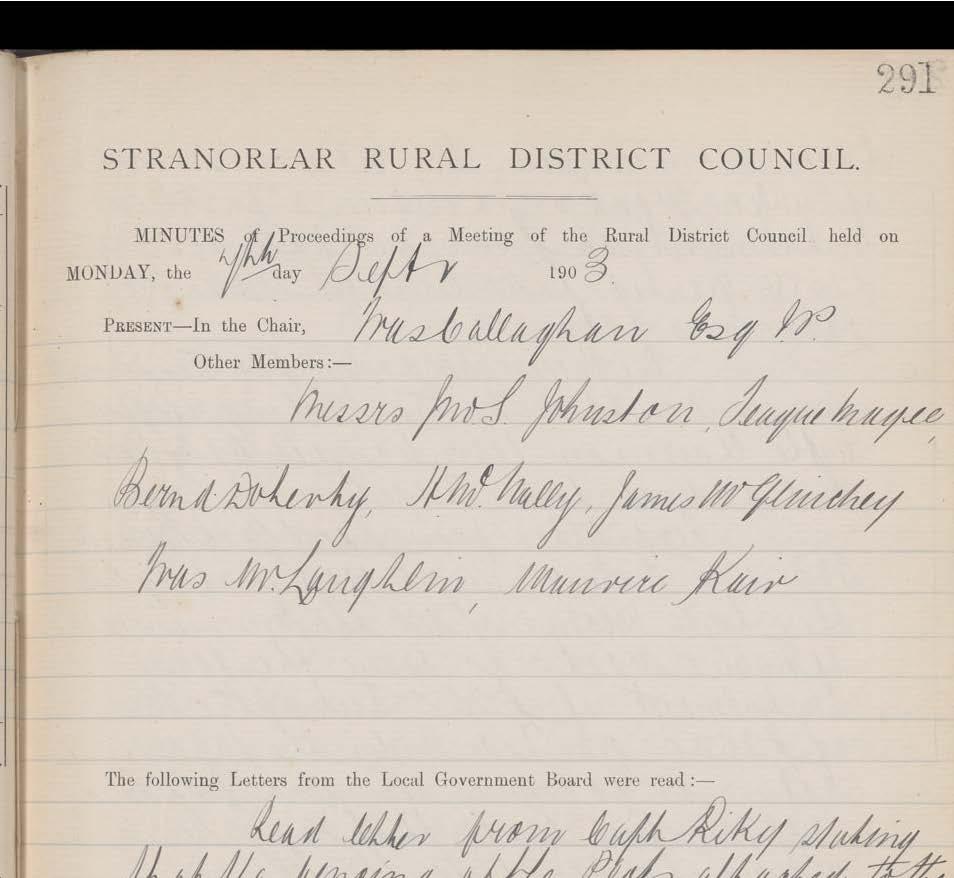 291
STRANORLAR RURAL DISTRICT COUNCIL.
MINUTES of Proceedings of a Meeting of the Rural District Council held on
MONDAY, the 7th day Septr 1903.
PRESENT—In the Chair, Thas Callaghan Esq JP.
Other Members:—
Messrs Jno S. Johnston, Teague Magee,
Bernd Doherty, H McNally, James McGlinchey
Thas McLaughlin, Maurice Kair
The following Letters from the Local Government Board were read:—
Read letter from Capt Riky stating
that the fencing of the Plots attached to the